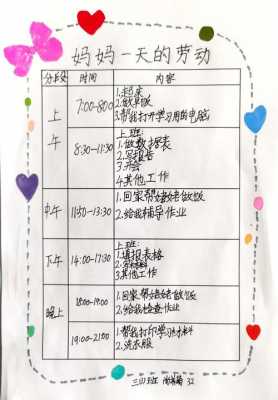 妈妈一天的劳动
分段 时间 内容
上午
7:00-8:00
1.起床
2.做早饭
3.帮我打开学习用的电脑
8:30-11:30
上班:
1.做数据表
2.写报告
3.开会
4.其他工作
中午 11:50-13:30
1.回家帮姥姥做饭
2.给我辅导作业
下午 14:00-17:30
上班:
1.填报表格
3.其他工作
晚上
18:00-19:00
1.回家帮姥姥做饭
2.给我检查作业
19:00-21:00
1.帮我打印学习材料
2.洗衣服
三(1)班 32